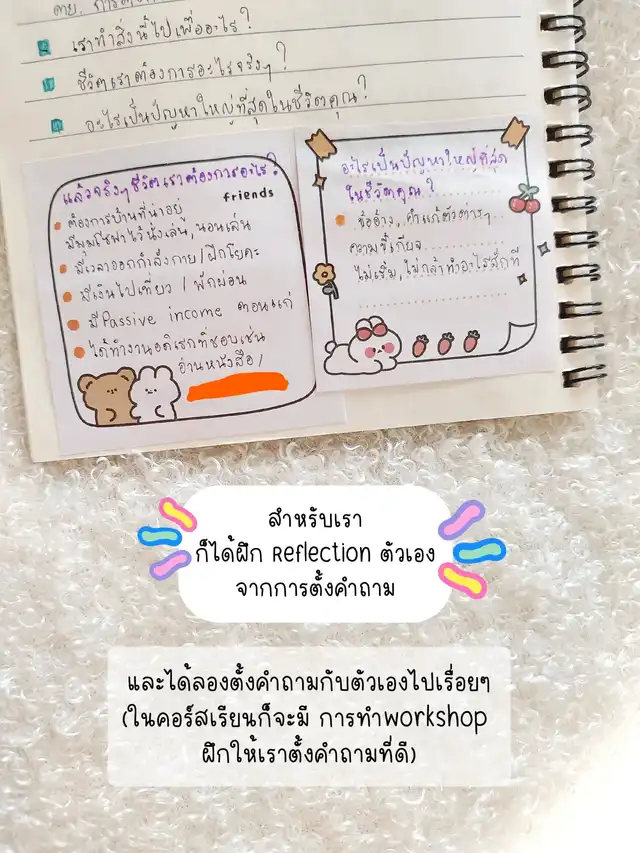 ตย. การตั้งค
เราทำสิ่งนี้ไปเพื่ออะไร?
ชีวิตเราต้องการอะไรจริงๆ?
อะไรเป็นปัญหาใหญ่ที่สุดในชีวิตคุณ?
แล้วจริงๆ ชีวิตเราต้องการอะไร?
friends
ต้องการบ้านที่น่าอยู่
มีมุมโซฟาไว้นั่งเล่น, นอนเล่น
มีเวลาออกกำลังกาย / ฝึกโยคะ
มีเงินไปเที่ยว / พักผ่อน
มี Passive income ตอนแก่
ได้ทำงานอดิเรกที่ชอบเช่น
อ่านหนังสือ /
อะไรเป็นปัญหาใหญ่ที่สุด
ในชีวิตคุณ?
ข้ออ้าง, คำแก้ตัวต่างๆ
ความขี้เกียจ
ไม่เริ่ม, ไม่กล้าทำอะไรสักที
สำหรับเรา
ก็ได้ฝึก Reflection ตัวเอง
จากการตั้งคำถาม
และได้ลองตั้งคำถามกับตัวเองไปเรื่อยๆ
(ในคอร์สเรียนก็จะมี การทำworkshop
ฝึกให้เราตั้งคำถามที่ดี)